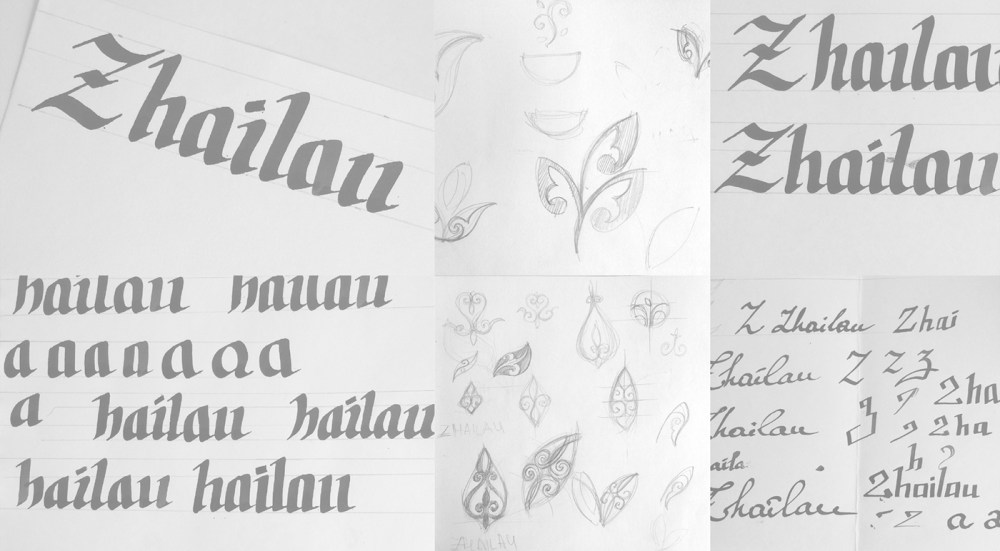 Zhailau
Zhailau
Zhailau
hailau hailau
a a a a a a a a
a hailau hailau
hailau hailau
ZHAILAU
Z Zhailau Zhai
Zhailau Z Z Z
Zha
Zhailau Zha
h
Zhailau
Zhailau
Z a a